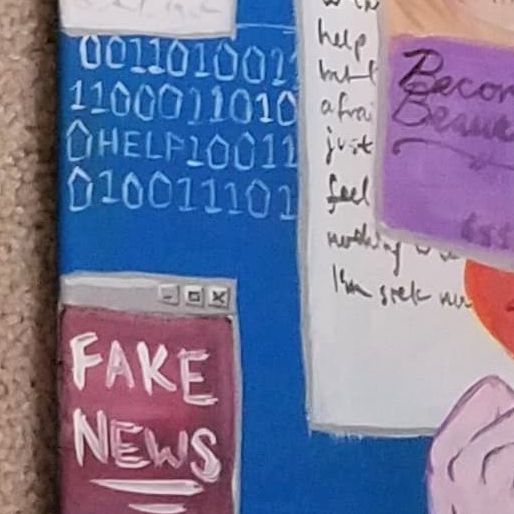 0011010011
1100011010
0HELP10011
010011101
FAKE
NEWS
help
but
afrai
just
feel
nothing
I'm sick
Becom
Beaut